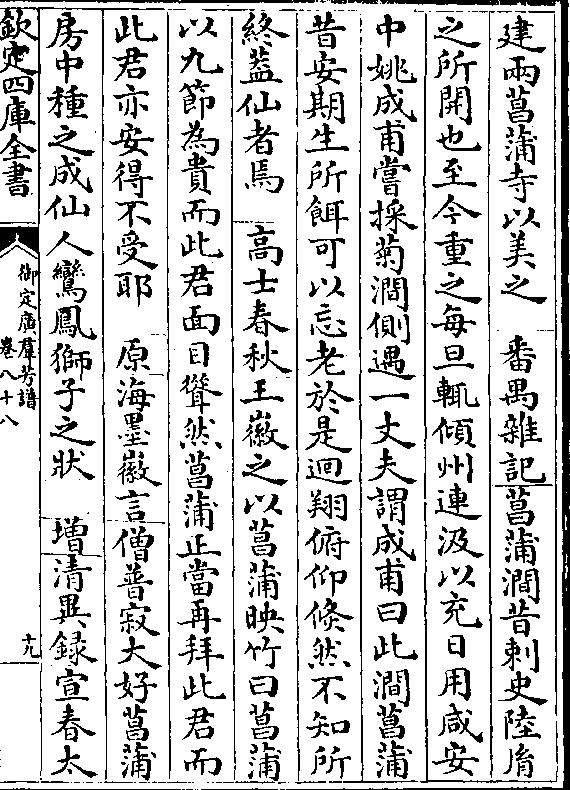 建兩菖蒲寺以美之 番禺雜記菖蒲澗昔刺史陸胤
之所開也至今重之每旦輒傾州連汲以充日用咸安
中姚成甫嘗採菊澗側遇一丈夫謂成甫曰此澗菖蒲
昔安期生所餌可以忘老於是迴翔俯仰倐然不知所
終蓋仙者焉 高士春秋王徽之以菖蒲映竹曰菖蒲
以九節為貴而此君面目聳然菖蒲正當再拜此君而
此君亦安得不受耶 原海墨㣲言僧普寂大好菖蒲
房中種之成仙人鸞鳳獅子之狀 増清異録宣春太
欽定四庫全書
御定廣羣芳譜
卷八十八
十九